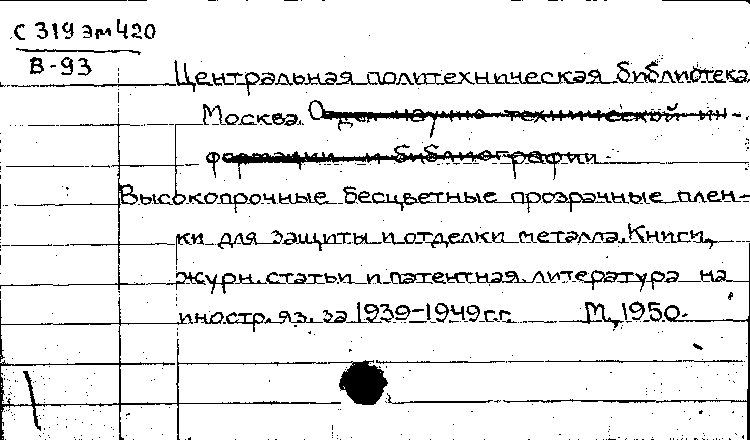 С 319 эм 420
В-93
Центральная политехническая библиотека
Москва. Отдел научно-технической ин-
формации и библиографии.
Высокопрочные бесцветные прозрачные плен-
ки для защиты и отделки металла. Книги,
журн. статьи и патентная литература на
иностр. яз. за 1939-1949 г.г. М., 1950.